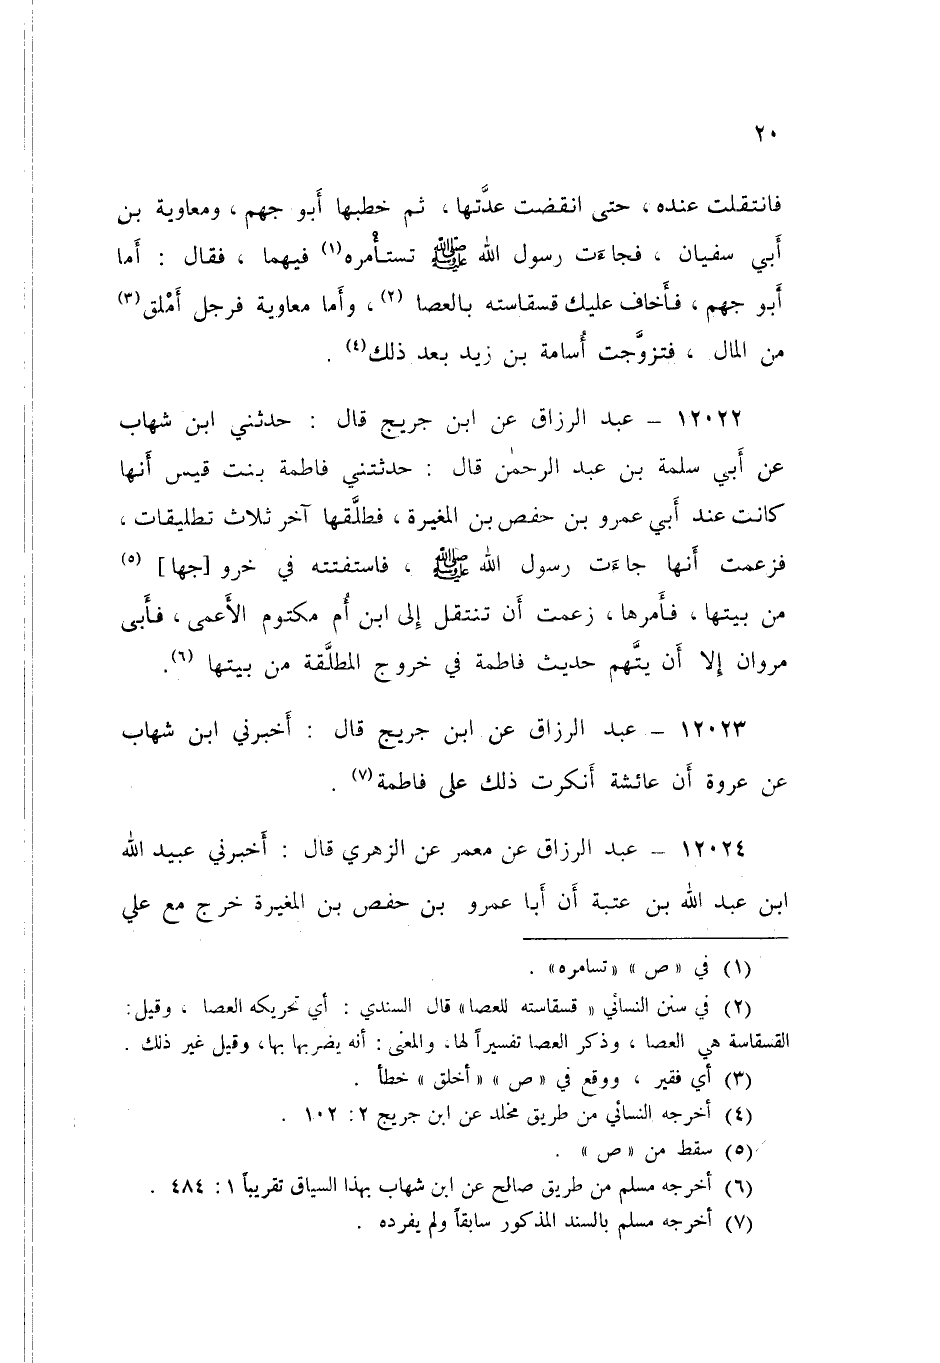 ٢٠
فانتقلت عنده ، حتى انقضت عدَّتها ، ثم خطبها أَبو جهم ، ومعاوية بن
أَبي سفيان ، فجاءَت رسول الله ﷺ تستأْمره(١) فيهما ، فقال : أَما
أَبو جهم ، فأَخاف عليك قسقاسته بالعصا (٢) ، وأَما معاوية فرجل أَمْلق(٣)
من المال ، فتزوَّجت أُسامة بن زيد بعد ذلك(٤) .
١٢٠٢٢ – عبد الرزاق عن ابن جريج قال : حدثني ابن شهاب
عن أَبي سلمة بن عبد الرحمٰن قال : حدثتني فاطمة بنت قيس أَنها
كانت عند أَبي عمرو بن حفص بن المغيرة ، فطلَّقها آخر ثلاث تطليقات ،
فزعمت أَنها جاءَت رسول الله ﷺ ، فاستفتته في خرو [جها] (٥)
من بيتها ، فأَمرها ، زعمت أَن تنتقل إِلى ابن أُم مكتوم الأَعمى ، فأَبى
مروان إِلا أَن يتَّهم حديث فاطمة في خروج المطلَّقة من بيتها (٦).
١٢٠٢٣ – عبد الرزاق عن ابن جريج قال : أَخبرني ابن شهاب
عن عروة أَن عائشة أَنكرت ذلك على فاطمة(٧) .
١٢٠٢٤ – عبد الرزاق عن معمر عن الزهري قال : أَخبرني عبيد الله
ابن عبد الله بن عتبة أَن أَبا عمرو بن حفص بن المغيرة خرج مع علي
(١) في « ص » «تسامره» .
(٢) في سنن النسائي « قسقاسته للعصا» قال السندي : أي تحريكه العصا ، وقيل :
القسقاسة هي العصا ، وذكر العصا تفسيراً لها، والمعنى : أنه يضربها بها، وقيل غير ذلك .
(٣) أي فقير ، ووقع في « ص » « أخلق » خطأ .
(٤) أخرجه النسائي من طريق مخلد عن ابن جريج ٢ : ١٠٢ .
(٥) سقط من « ص » .
(٦) أخرجه مسلم من طريق صالح عن ابن شهاب بهذا السياق تقريباً ١ : ٤٨٤ .
(٧) أخرجه مسلم بالسند المذكور سابقاً ولم يفرده .